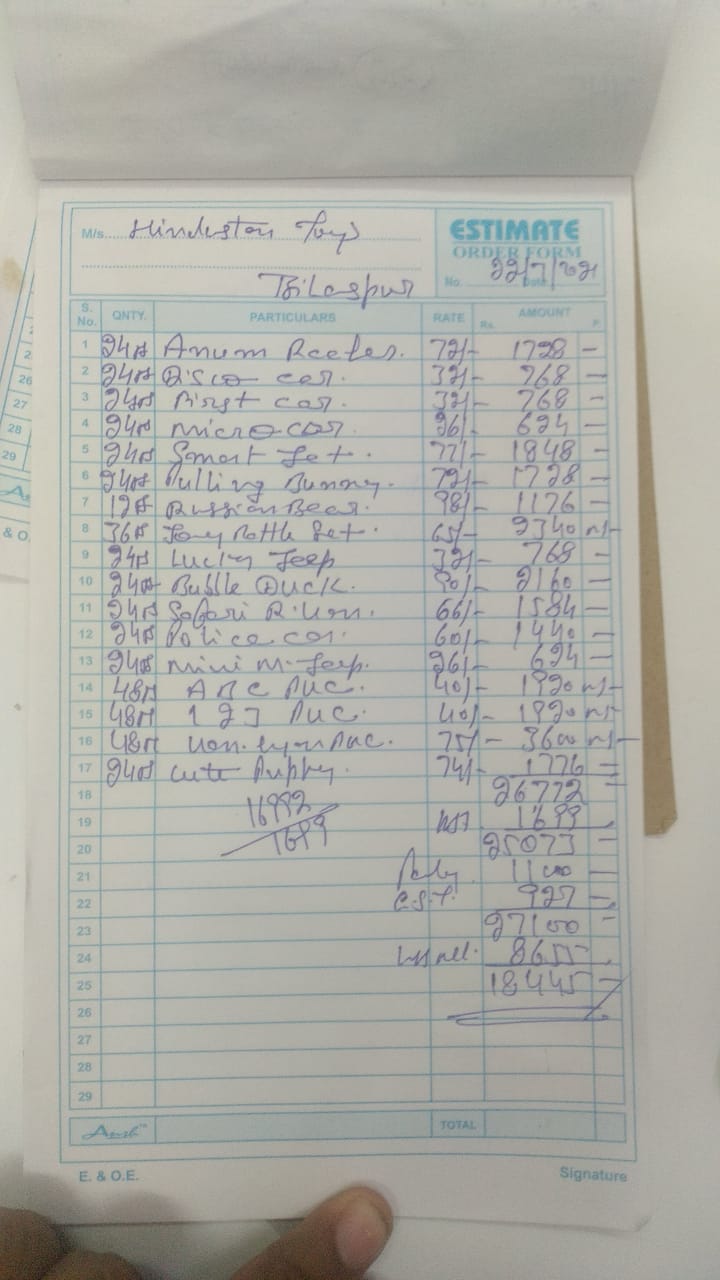 M/s. Hindustan Toys
ESTIMATE
ORDER FORM
Bilaspur
No. Date 22/7/21
S. No. QNTY. PARTICULARS RATE AMOUNT
Rs. P.
1 24 72/- 1728 -
2 24 Disco car. 32/- 768 -
3 24 First car. 32/- 768 -
4 24 Micro car 26/- 624 -
5 24 Smart Jet. 77/- 1848 -
6 24 Pulling Bunny. 72/- 1728 -
7 12 Russian Bear. 98/- 1176 -
8 36 Bottle Set. 65/- 2340
9 24 Lucky Jeep 32/- 768 -
10 24 Bubble Duck. 90/- 2160 -
11 24 Safari 66/- 1584 -
12 24 Police car. 60/- 1440 -
13 24 Mini M. Jeep. 26/- 624 -
14 48 ABC 40/- 1920
15 48 123 40/- 1920
16 48 75/- 3600
17 24 Cute Puppy. 74/- 1776 -
18 26772 -
16992
19 1699
1699
20 25073 -
21 1100 -
22 G.S.T. 927 -
23 27100 -
24 8655 -
25 18445 -
26
27
28
29
TOTAL
E. & O.E. Signature